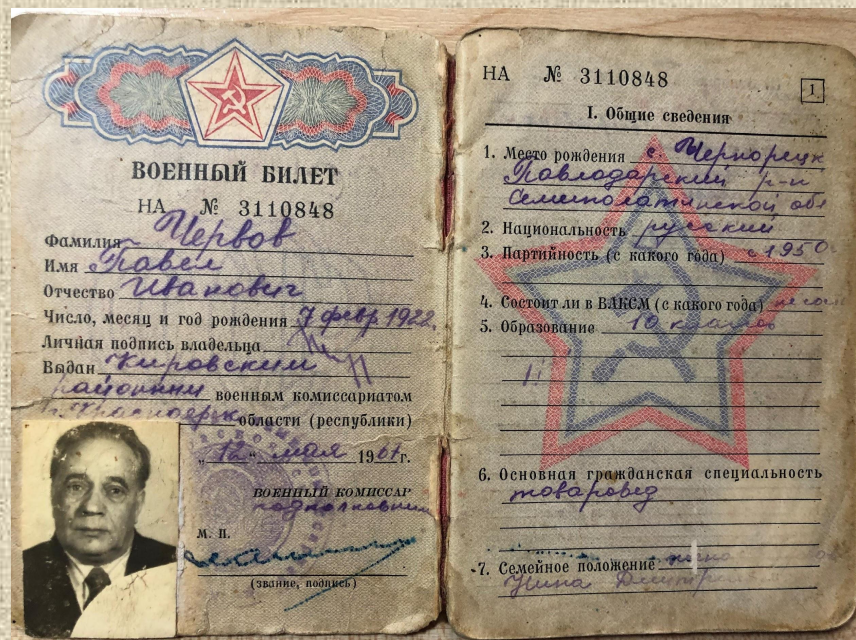 ВОЕННЫЙ БИЛЕТ
НА № 3110848
Фамилия Червов
Имя Павел
Отчество Иванович
Число, месяц и год рождения 7 февр 1922
Личная подпись владельца
Выдан Кировским
районным военным комиссариатом
г. Красноярск области (республики)
"12" мая 1961г.
ВОЕННЫЙ КОМИССАР
подполковник
М. П.
(звание, подпись)
НА № 3110848
1
I. Общие сведения
1. Место рождения с. Чернорецк
Павлодарский р-н
Семипалатинской обл
2. Национальность русский
3. Партийность (с какого года) с 1950
4. Состоит ли в ВЛКСМ (с какого года)
5. Образование 10 классов
6. Основная гражданская специальность
товаровед
7. Семейное положение
Нина